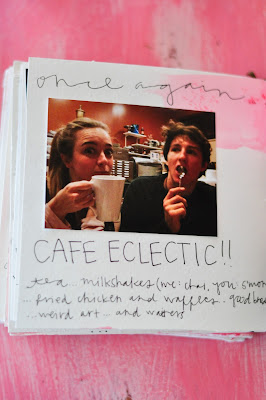 once again...
CAFE ECLECTIC!!
tea... milkshakes (me: chai, you: s'mor
...fried chicken and waffles. good brea
...weird art... and waters